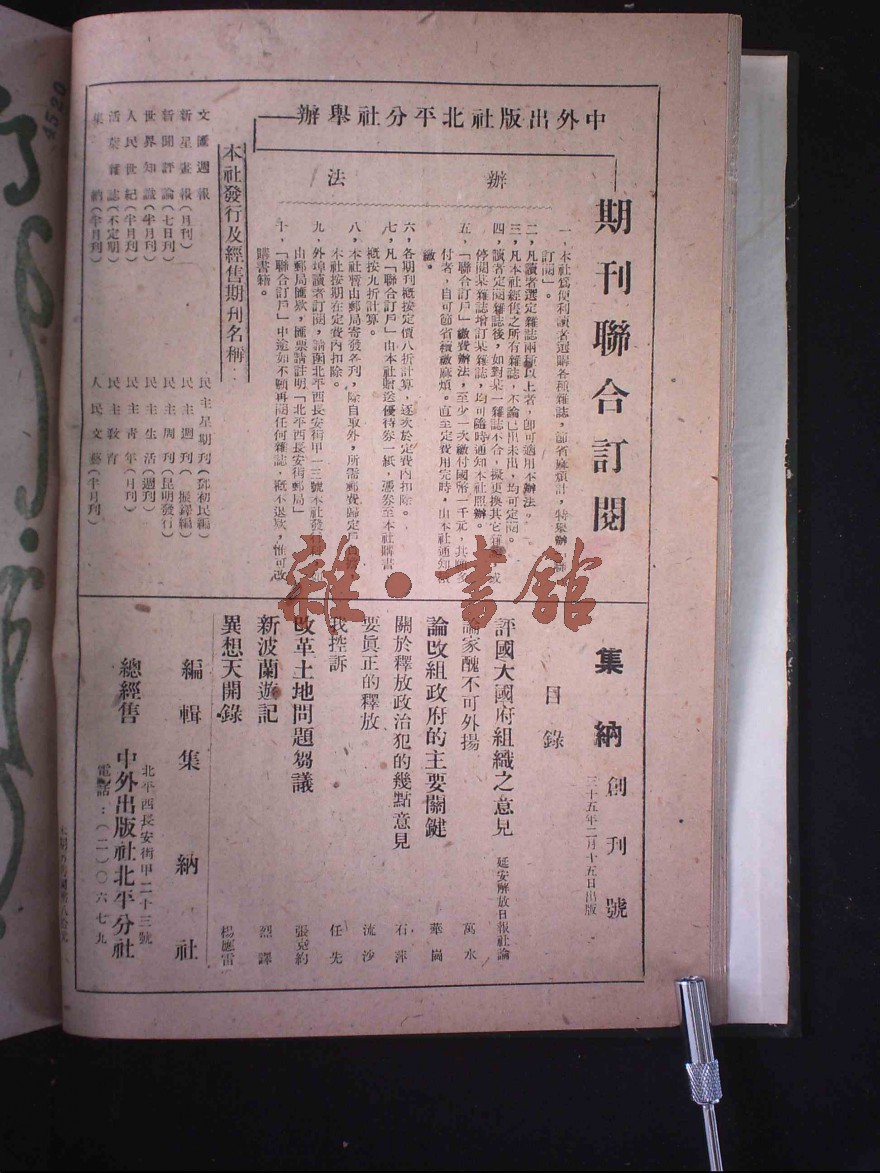 中外出版社北平分社舉辦
期刊聯合訂閱
辦法
一、本社爲便利讀者選購各種雜誌，節省麻煩計，特舉辦「聯合
訂閱」。
二、凡讀者選定雜誌兩種以上者，卽可適用本辦法。
三、凡本社經售之所有雜誌，不論已出未出，均可定閱。
四、讀者定閱雜誌後，如對某一雜誌不合，擬更換其它雜誌或
停閱某雜誌增訂某雜誌，均可隨時通知本社照辦。
五、「聯合訂戶」繳費辦法，至少一次繳付國幣一千元，其願多
付者，自可節省續繳麻煩。直至定費用完時，由本社通知
繳。
六、各期刊概按定價八折計算，逐次於定費內扣除。
七、凡「聯合訂戶」由本社贈送優待券一紙，憑券至本社購書
概按九折計算。
八、本社暫由郵局寄發各刊，除自取外，所需郵費歸定戶
本社按期在定費內扣除。
九、外埠讀者訂閱，請函北平西長安街甲一三號本社發行
由郵局匯欵，匯票請註明「北平西長安街郵局」
十、「聯合訂戶」中途如不願再閱任何雜誌，概不退欵，惟可改
購書籍。
本社發行及經售期刊名稱：
文匯週報
新星畫報(月刊)
新聞評論(七日刊)
世界知識(半月刊)
人民世紀(半月刊)
活萊雜誌(不定期)
集納(半月刊)
民主星期刊(鄧初民編)
民主週刊(振鐸編)
民主周刊(昆明發行)
民主生活(週刊)
民主青年(月刊)
民主教育
人民文藝(半月刊)
集納 創刊號
三十五年二月十五日出版
目錄
評國大國府組織之意見 延安解放日報社論
論家醜不可外揚 萬水
論改組政府的主要關鍵 華崗
關於釋放政治犯的幾點意見 石萍
要眞正的釋放 流沙
我控訴 任先
改革土地問題芻議 張克約
新波蘭遊記 烈譯
異想天開錄 楊應雷
編輯 集納社
總經售 中外出版社北平分社
北平西長安街甲二十三號
電話：(二)〇六七九
雜·書館
4520